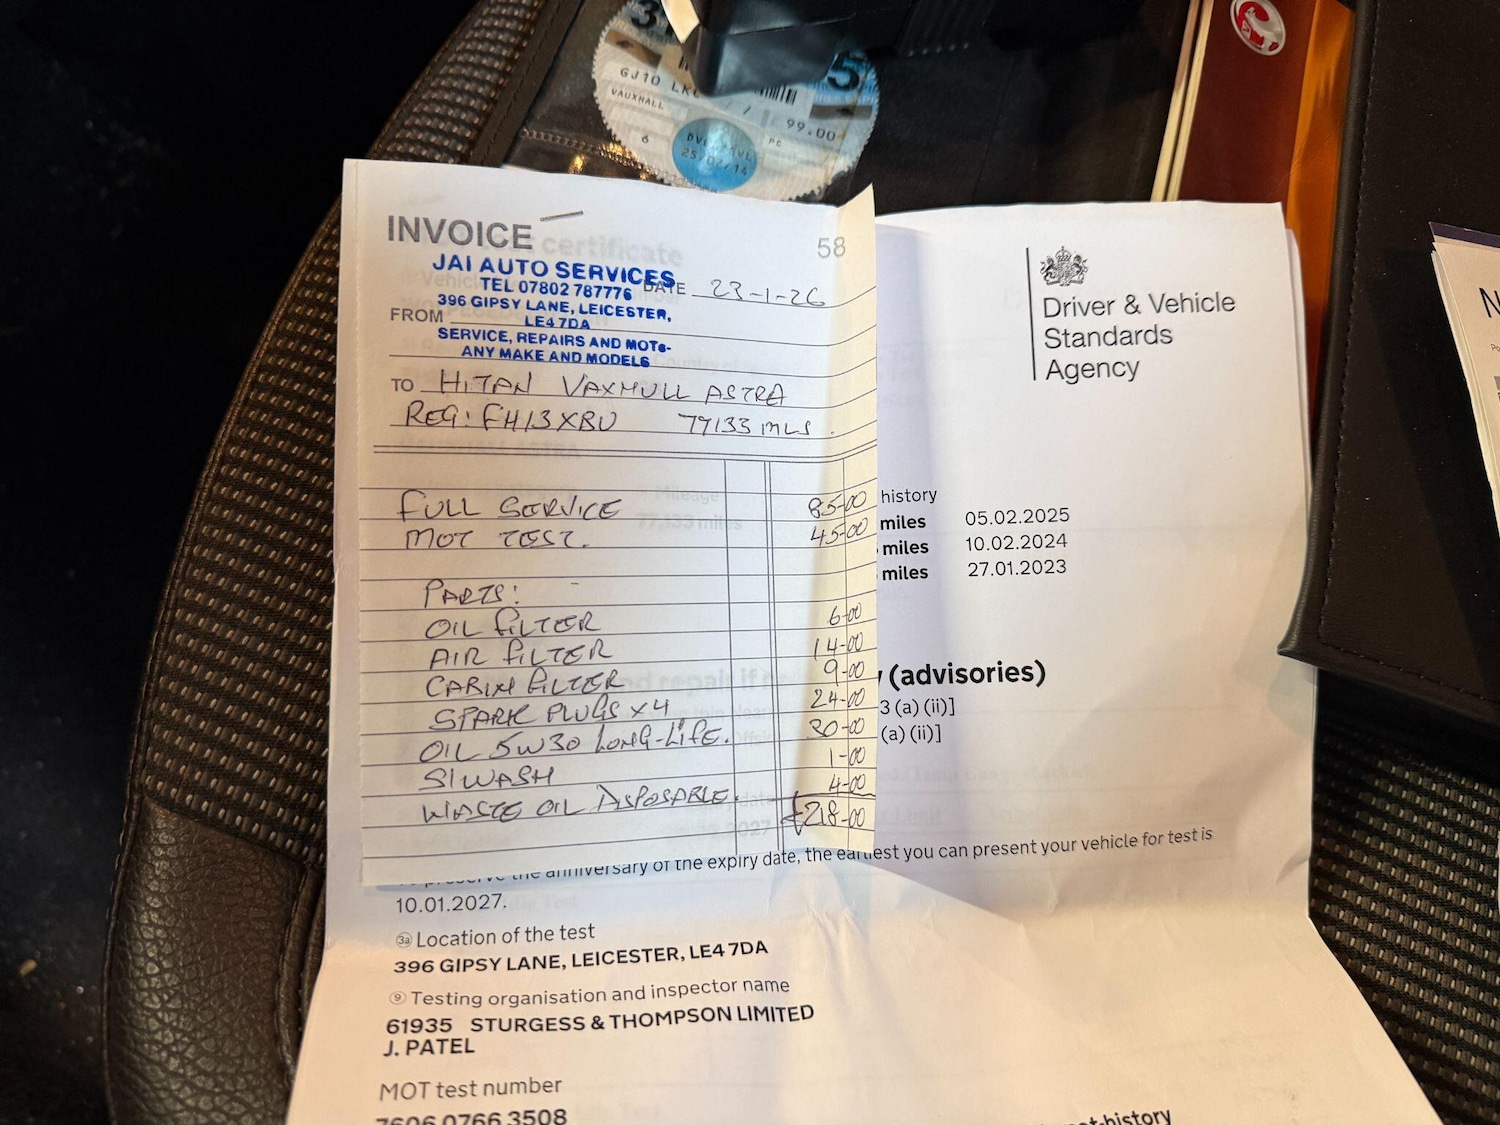 GJ10
VAUXHALL
99.00
6
PC
INVOICE
58
JAI AUTO SERVICES
TEL 07802 787776
DATE 23-1-26
396 GIPSY LANE, LEICESTER,
FROM LE47DA
SERVICE, REPAIRS AND MOTs-
ANY MAKE AND MODELS
TO HITAN VAXMULL ASTRA
REG: FH13XBU 77133 MLS.
FULL SERVICE 85-00
MOT TEST. 45-00
PARTS:
OIL FILTER 6-00
AIR FILTER 14-00
CABIN FILTER 9-00
SPARK PLUGS x 4 24-00
OIL 5W30 LONG-LIFE. 30-00
S/WASH 1-00
WASTE OIL DISPOSABLE. 4-00
£218-00
Driver & Vehicle
Standards
Agency
history
miles 05.02.2025
miles 10.02.2024
miles 27.01.2023
(advisories)
3 (a) (ii)]
(a) (ii)]
To preserve the anniversary of the expiry date, the earliest you can present your vehicle for test is
10.01.2027.
3a Location of the test
396 GIPSY LANE, LEICESTER, LE4 7DA
9 Testing organisation and inspector name
61935 STURGESS & THOMPSON LIMITED
J. PATEL
MOT test number
7606 0766 3508